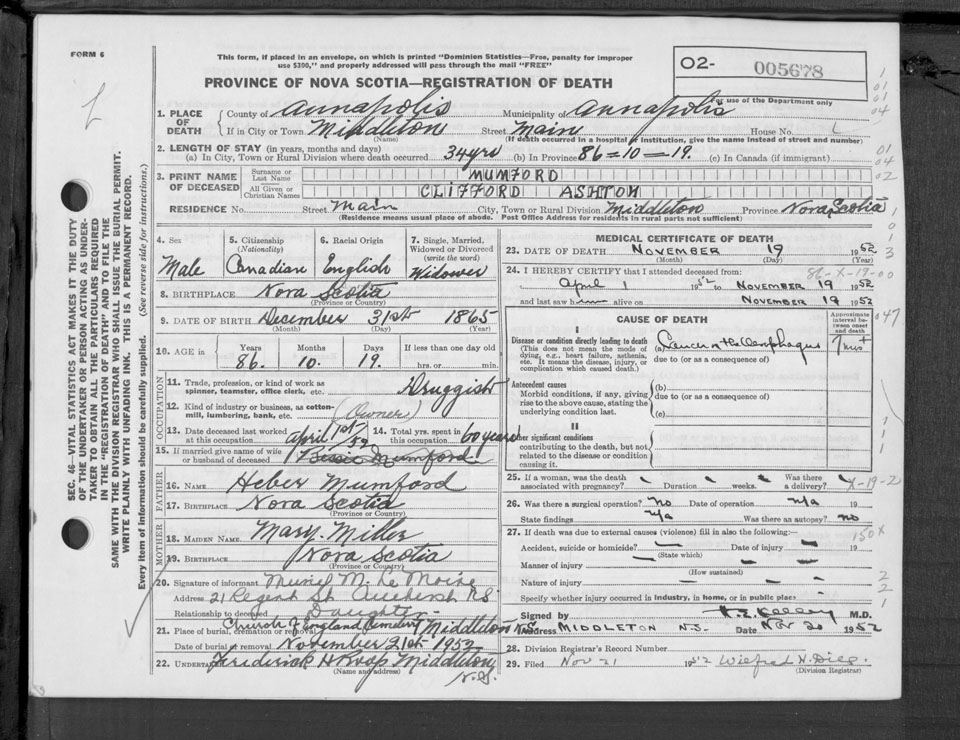 FORM 6
This form, if placed in an envelope, on which is printed "Dominion Statistics—Free, penalty for improper
use $300," and properly addressed will pass through the mail "FREE"
PROVINCE OF NOVA SCOTIA—REGISTRATION OF DEATH
O2- 005678
For use of the Department only
1. PLACE OF DEATH
County of Annapolis Municipality of Annapolis
If in City or Town Middleton Street Main House No.
(Name) (If death occurred in a hospital or institution, give the name instead of street and number)
2. LENGTH OF STAY (in years, months and days)
(a) In City, Town or Rural Division where death occurred 34 yrs (b) In Province 86=10=19. (c) In Canada (if immigrant)
3. PRINT NAME OF DECEASED
Surname or Last Name MUMFORD
All Given or Christian Names CLIFFORD ASHTON
RESIDENCE No. Street Main City, Town or Rural Division Middleton Province Nova Scotia
(Residence means usual place of abode. Post Office Address for residents in rural parts not sufficient)
4. Sex
Male
5. Citizenship
(Nationality)
Canadian
6. Racial Origin
English
7. Single, Married, Widowed or Divorced
(write the word)
Widower
8. BIRTHPLACE Nova Scotia
(Province or Country)
9. DATE OF BIRTH December 31st 1865
(Month) (Day) (Year)
10. AGE in
Years Months Days If less than one day old
86. 10. 19. hrs. or min.
OCCUPATION
11. Trade, profession, or kind of work as
spinner, teamster, office clerk, etc. Druggist
12. Kind of industry or business, as cotton-
mill, lumbering, bank, etc. (Owner)
13. Date deceased last worked
at this occupation April 1st/52
14. Total yrs. spent in
this occupation 60 years
15. If married give name of wife
or husband of deceased Bessie Mumford
FATHER
16. NAME Heber Mumford
17. BIRTHPLACE Nova Scotia
(Province or Country)
MOTHER
18. MAIDEN NAME Mary Miller
19. BIRTHPLACE Nova Scotia
(Province or Country)
20. Signature of informant Muriel M. Le Moine
Address 21 Regent St. Amherst N.S.
Relationship to deceased Daughter
21. Place of burial, cremation or removal Church of England Cemetery Middleton N.S.
Date of burial or removal November 21st 1952
22. UNDERTAKER Frederick H Middleton
(Name and address) N.S.
MEDICAL CERTIFICATE OF DEATH
23. DATE OF DEATH NOVEMBER 19 1952
(Month) (Day) (Year)
86-X-19-00
24. I HEREBY CERTIFY that I attended deceased from:
April 1 1952 to NOVEMBER 19 1952
and last saw him alive on NOVEMBER 19 1952
CAUSE OF DEATH
Approximate interval between onset and death
I
Disease or condition directly leading to death
(This does not mean the mode of
dying, e.g., heart failure, asthenia,
etc. It means the disease, injury, or
complication which caused death.)
(a) Cancer of the Oesophagus
due to (or as a consequence of)
7 mos +
Antecedent causes
Morbid conditions, if any, giving
rise to the above cause, stating the
underlying condition last.
(b)
due to (or as a consequence of)
(c)
II
Other significant conditions
contributing to the death, but not
related to the disease or condition
causing it.
25. If a woman, was the death
associated with pregnancy? Duration weeks. Was there
a delivery?
X-19-2
26. Was there a surgical operation? no Date of operation n/a 19
State findings n/a Was there an autopsy? no
27. If death was due to external causes (violence) fill in also the following:—
150x
Accident, suicide or homicide? Date of injury 19
(State which)
Manner of injury
(How sustained)
Nature of injury
Specify whether injury occurred in industry, in home, or in public place
Signed by H.E. Kelley M.D.
Address MIDDLETON N.S. Date NOV 20 1952
28. Division Registrar's Record Number
29. Filed Nov 21 1952 Wilfred N.
(Division Registrar)
SEC. 46—VITAL STATISTICS ACT MAKES IT THE DUTY
OF THE UNDERTAKER OR PERSON ACTING AS UNDER-
TAKER TO OBTAIN ALL THE PARTICULARS REQUIRED
IN THE "REGISTRATION OF DEATH" AND TO FILE THE
SAME WITH THE DIVISION REGISTRAR WHO SHALL ISSUE THE BURIAL PERMIT.
WRITE PLAINLY WITH UNFADING INK. THIS IS A PERMANENT RECORD.
Every item of information should be carefully supplied. (See reverse side for instructions.)